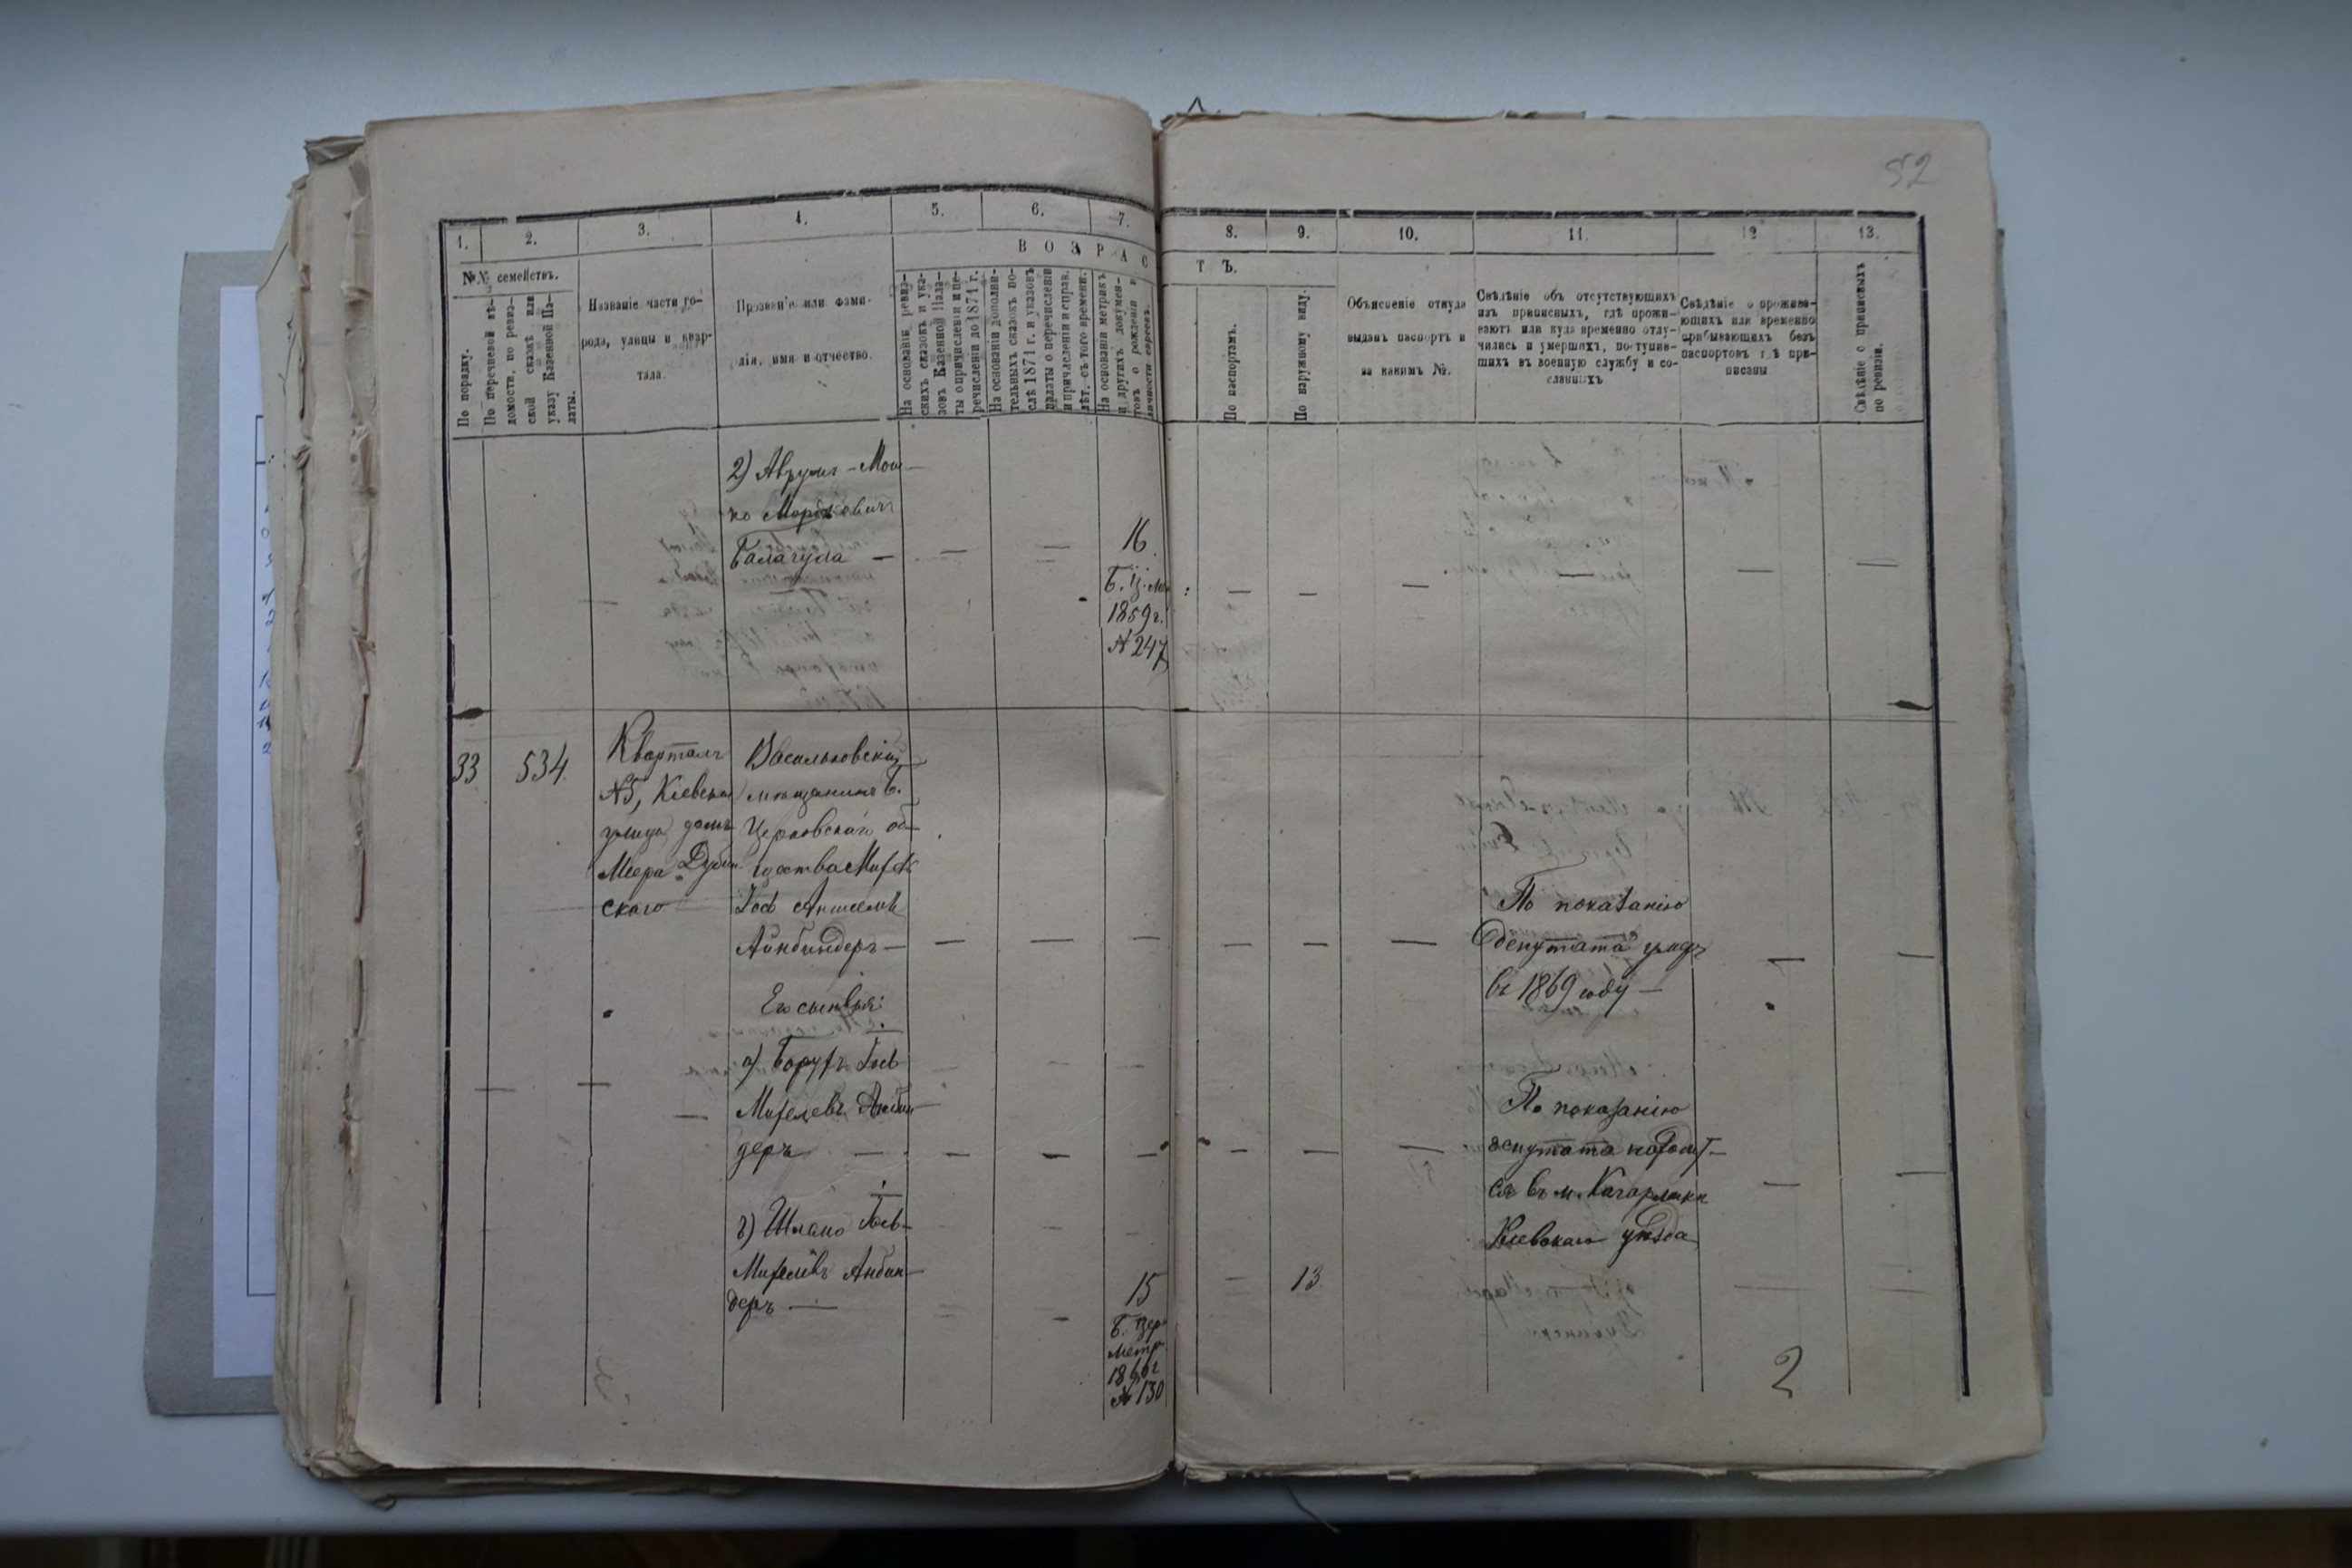 52
1.
2.
3.
4.
5.
6.
7.
8.
9.
10.
11.
12
13.
В О З Р А С
Т Ъ.
№№ семействъ.
По порядку.
По перечневой вѣ-
домости, по ревиз-
ской сказкѣ или
указу Казенной Па-
латы.
Названіе части го-
рода, улицы и квар-
тала.
Прозваніе или фами-
лія, имя и отчество.
На основаніи ревиз-
скихъ сказокъ и ука-
зовъ Казенной Пала-
ты о причисленіи и пе-
речисленіи до 1871 г.
На основаніи дополни-
тельныхъ сказокъ по-
слѣ 1871 г. и указовъ
палаты о перечисленіи
и причисленіи и справ.
лѣт. съ того времени.
На основаніи метрикъ
и другихъ докумен-
товъ о рожденіи и
личности евреевъ.
По паспортамъ.
По наружному виду.
Объясненіе откуда
выданъ паспортъ и
за какимъ №.
Свѣдѣніе объ отсутствующихъ
изъ приписныхъ, гдѣ прожи-
ваютъ или куда временно отлу-
чились и умершихъ, поступив-
шихъ въ военную службу и со-
сланныхъ.
Свѣдѣніе о прожива-
ющихъ или временно
прибывающихъ безъ
паспортовъ гдѣ при-
писаны
Свѣдѣніе о приписныхъ
по ревизіи.
2) Аврумъ - Мош-
ко Мордковичъ
Балагула —
16
Б. Ц. м.
1859 г.
№ 247
33
534.
Кварталъ
№5, Кіевская
улица домъ
Меера
ского
Васильковскій
мѣщанинъ Б.
Церковскаго об-
щества
Іось Аншелев
Айнбиндеръ —
По показанію
депутата умеръ
въ 1869 году —
Его сыновья:
а) Борухъ Іось
Михелевъ Айнбин-
деръ —
По показанію
депутата находит-
ся въ м. Кагарлыкѣ
Кіевскаго уѣзда
б) Шлемо Іось-
Михелевъ Анбин-
деръ —
15
Б. Цер.
метр.
1860 г
№ 130
13.
2